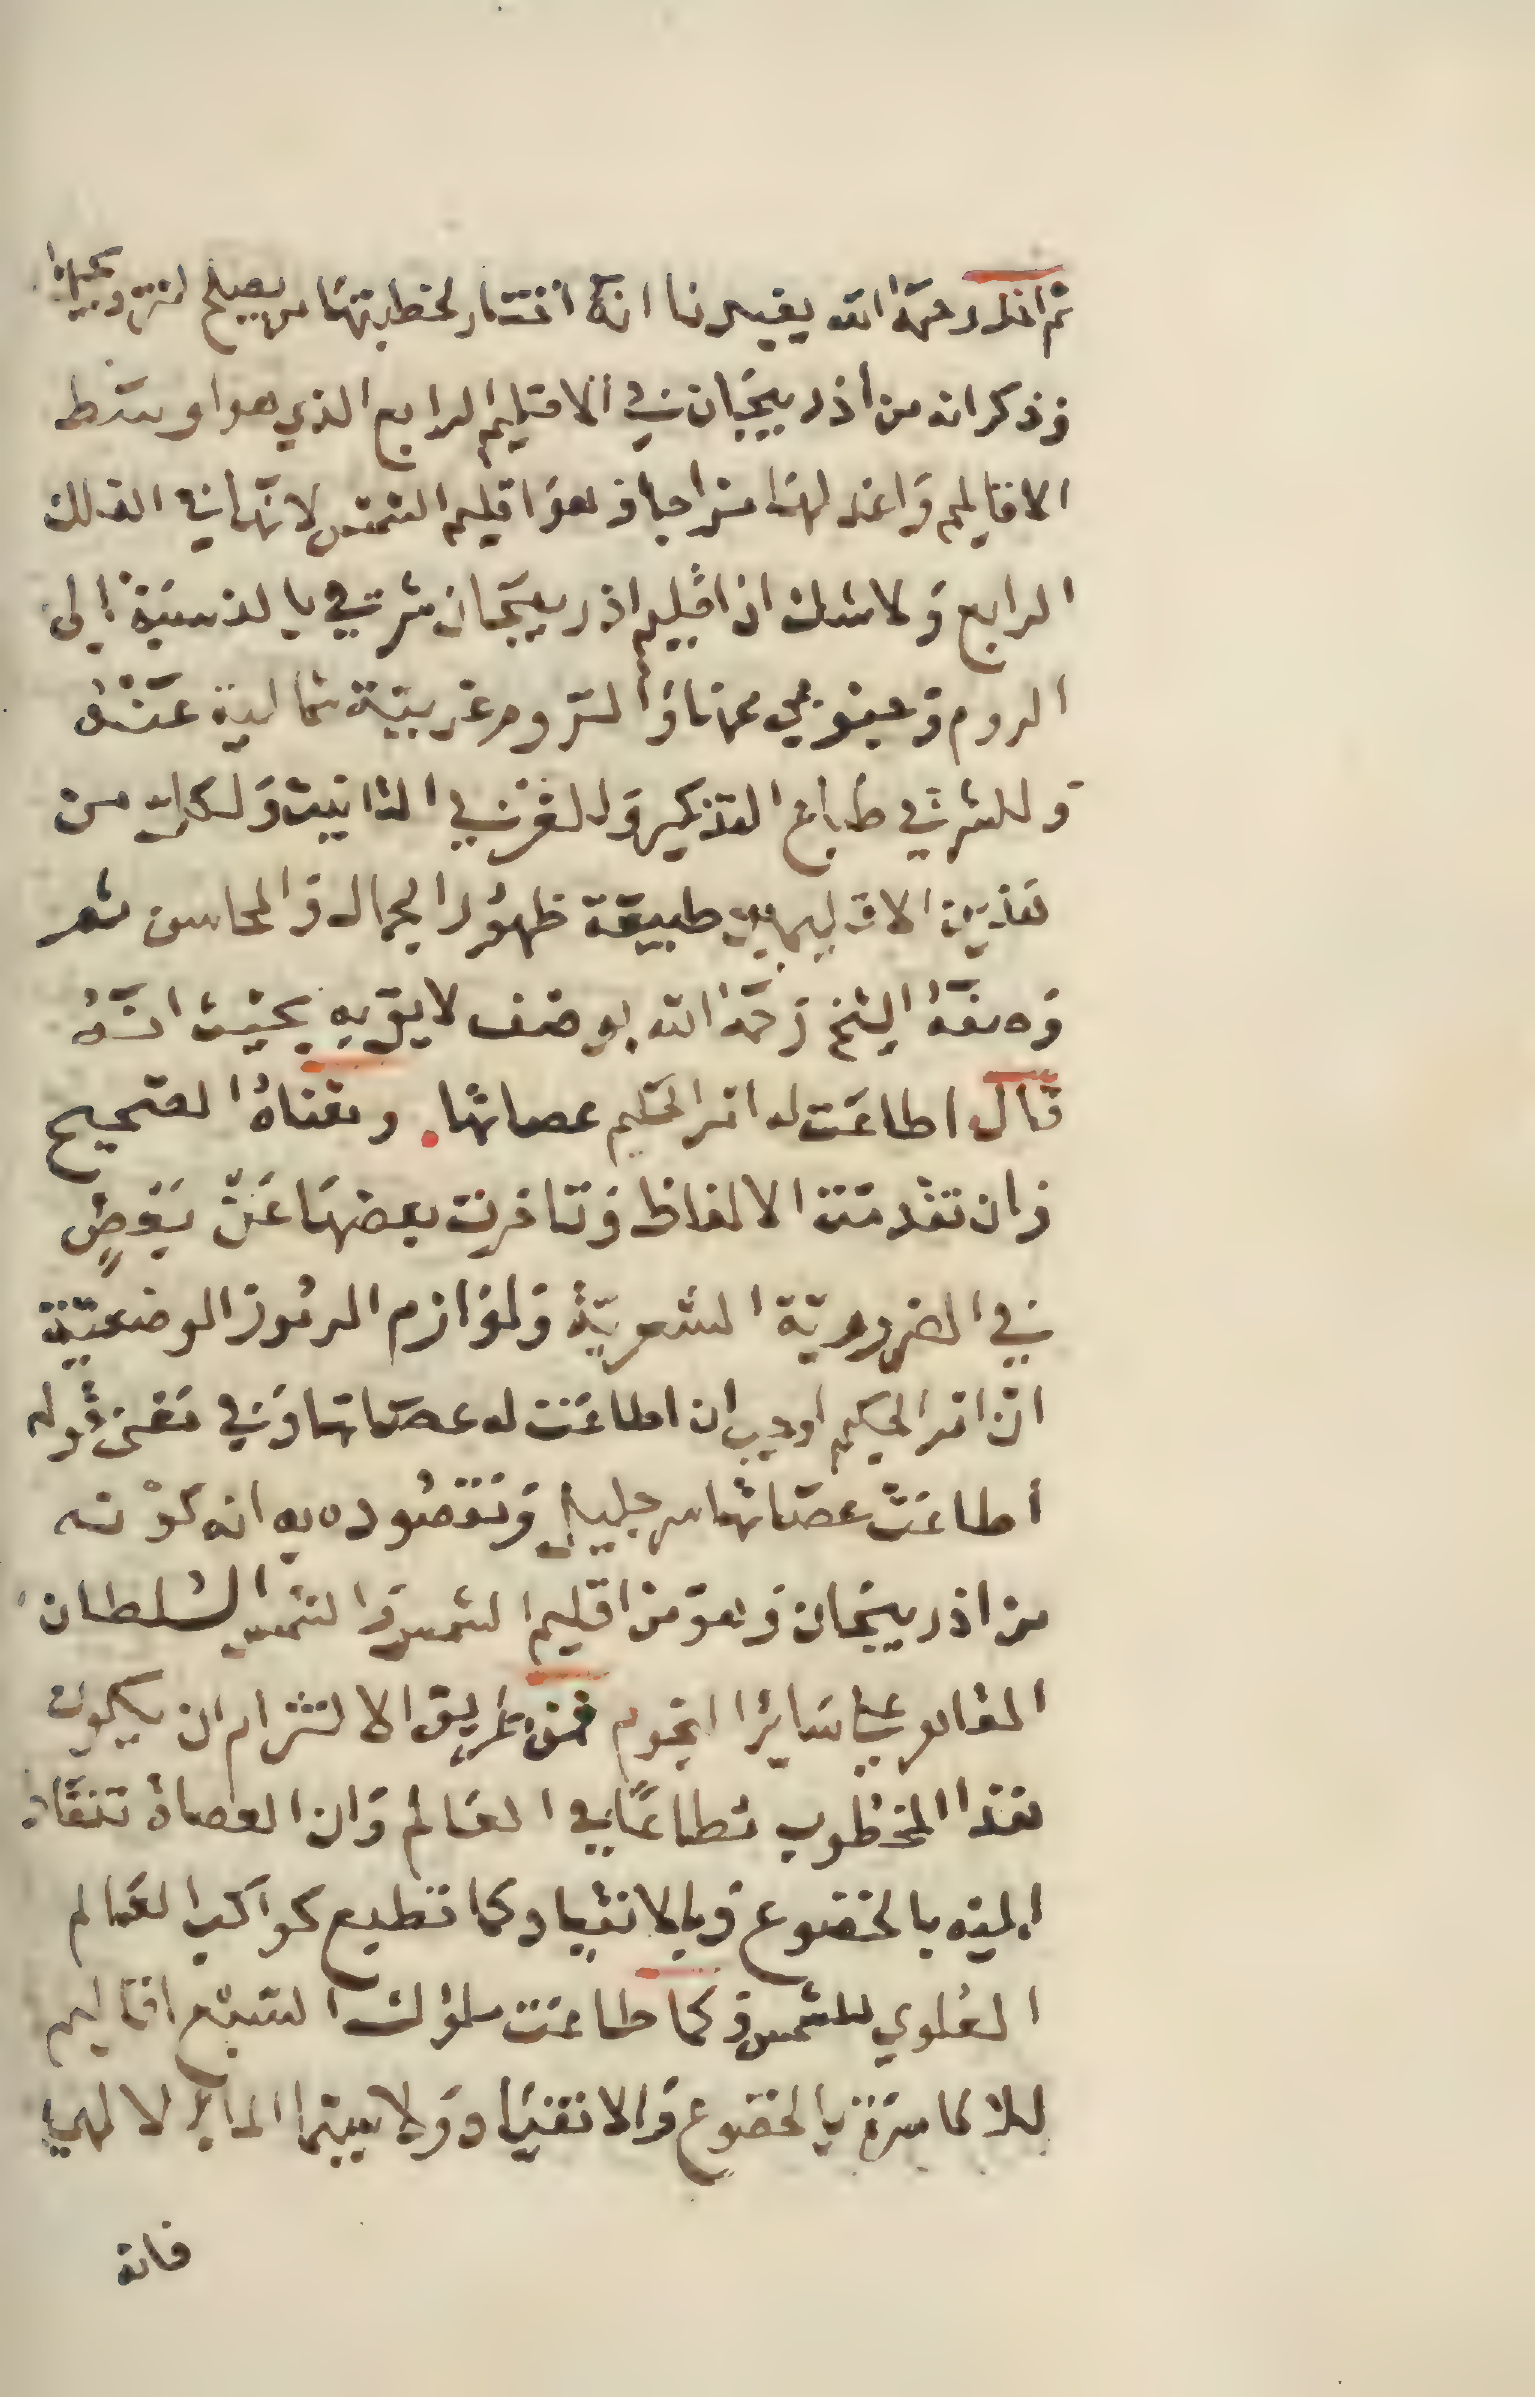 ثم اخذ رحمه الله يفيدنا انه اختار لخطبتها من يصلح لتزويجها
وذكر انه من اذربيجان في الاقليم الرابع الذي هو اوسط
الاقاليم واعدلها مزاجا وهو اقليم الشمس لانها في الفلك
الرابع ولا شك ان اقليم اذربيجان شرقي بالنسبة الى
الروم وجنوبي عنها والروم غربية شمالية عنه
وللشرقي طباع التذكير وللغربي التانيث ولكل من
هذين الاقليمين طبيعة ظهور الجمال والمحاسن ثم
وصفه الشيخ رحمه الله بوصف لايق به بحيث انه
قال اطاعت له امر الحكيم عصاتها ومعناه الصحيح
وان تقدمت الالفاظ وتاخرت بعضها عن بعض
في الضرورية الشعرية ولوازم الرموز الوضعية
ان امر الحكيم اوجب ان اطاعت له عصاتها وفي معنى قوله
اطاعت عصاتها سر جليل ومقصوده به انه كونه
من اذربيجان وهو من اقليم الشمس والشمس السلطان
القاهر على سائر النجوم فمن طريق الالتزام ان يكون
هذا المخطوب مطاعا في العالم وان العصاة تنقاد
اليه بالخضوع وبالانقياد كما تطيع كواكب العالم
العلوي للشمس وكما طاعت ملوك السبع اقاليم
للاكاسرة بالخضوع والانقياد ولا سيما الماء الالهي
فانه